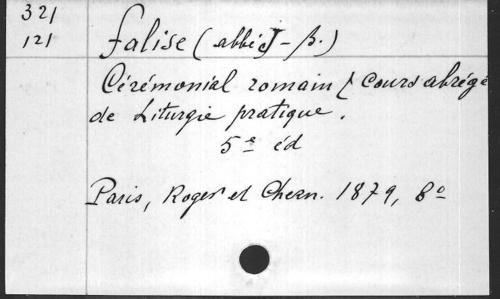 321
121
Falise (abbé) - B.)
Cérémonial romain / Cours abrégé
de Liturgie pratique.
5e éd
Paris, Roger et Chern. 1879, 8°